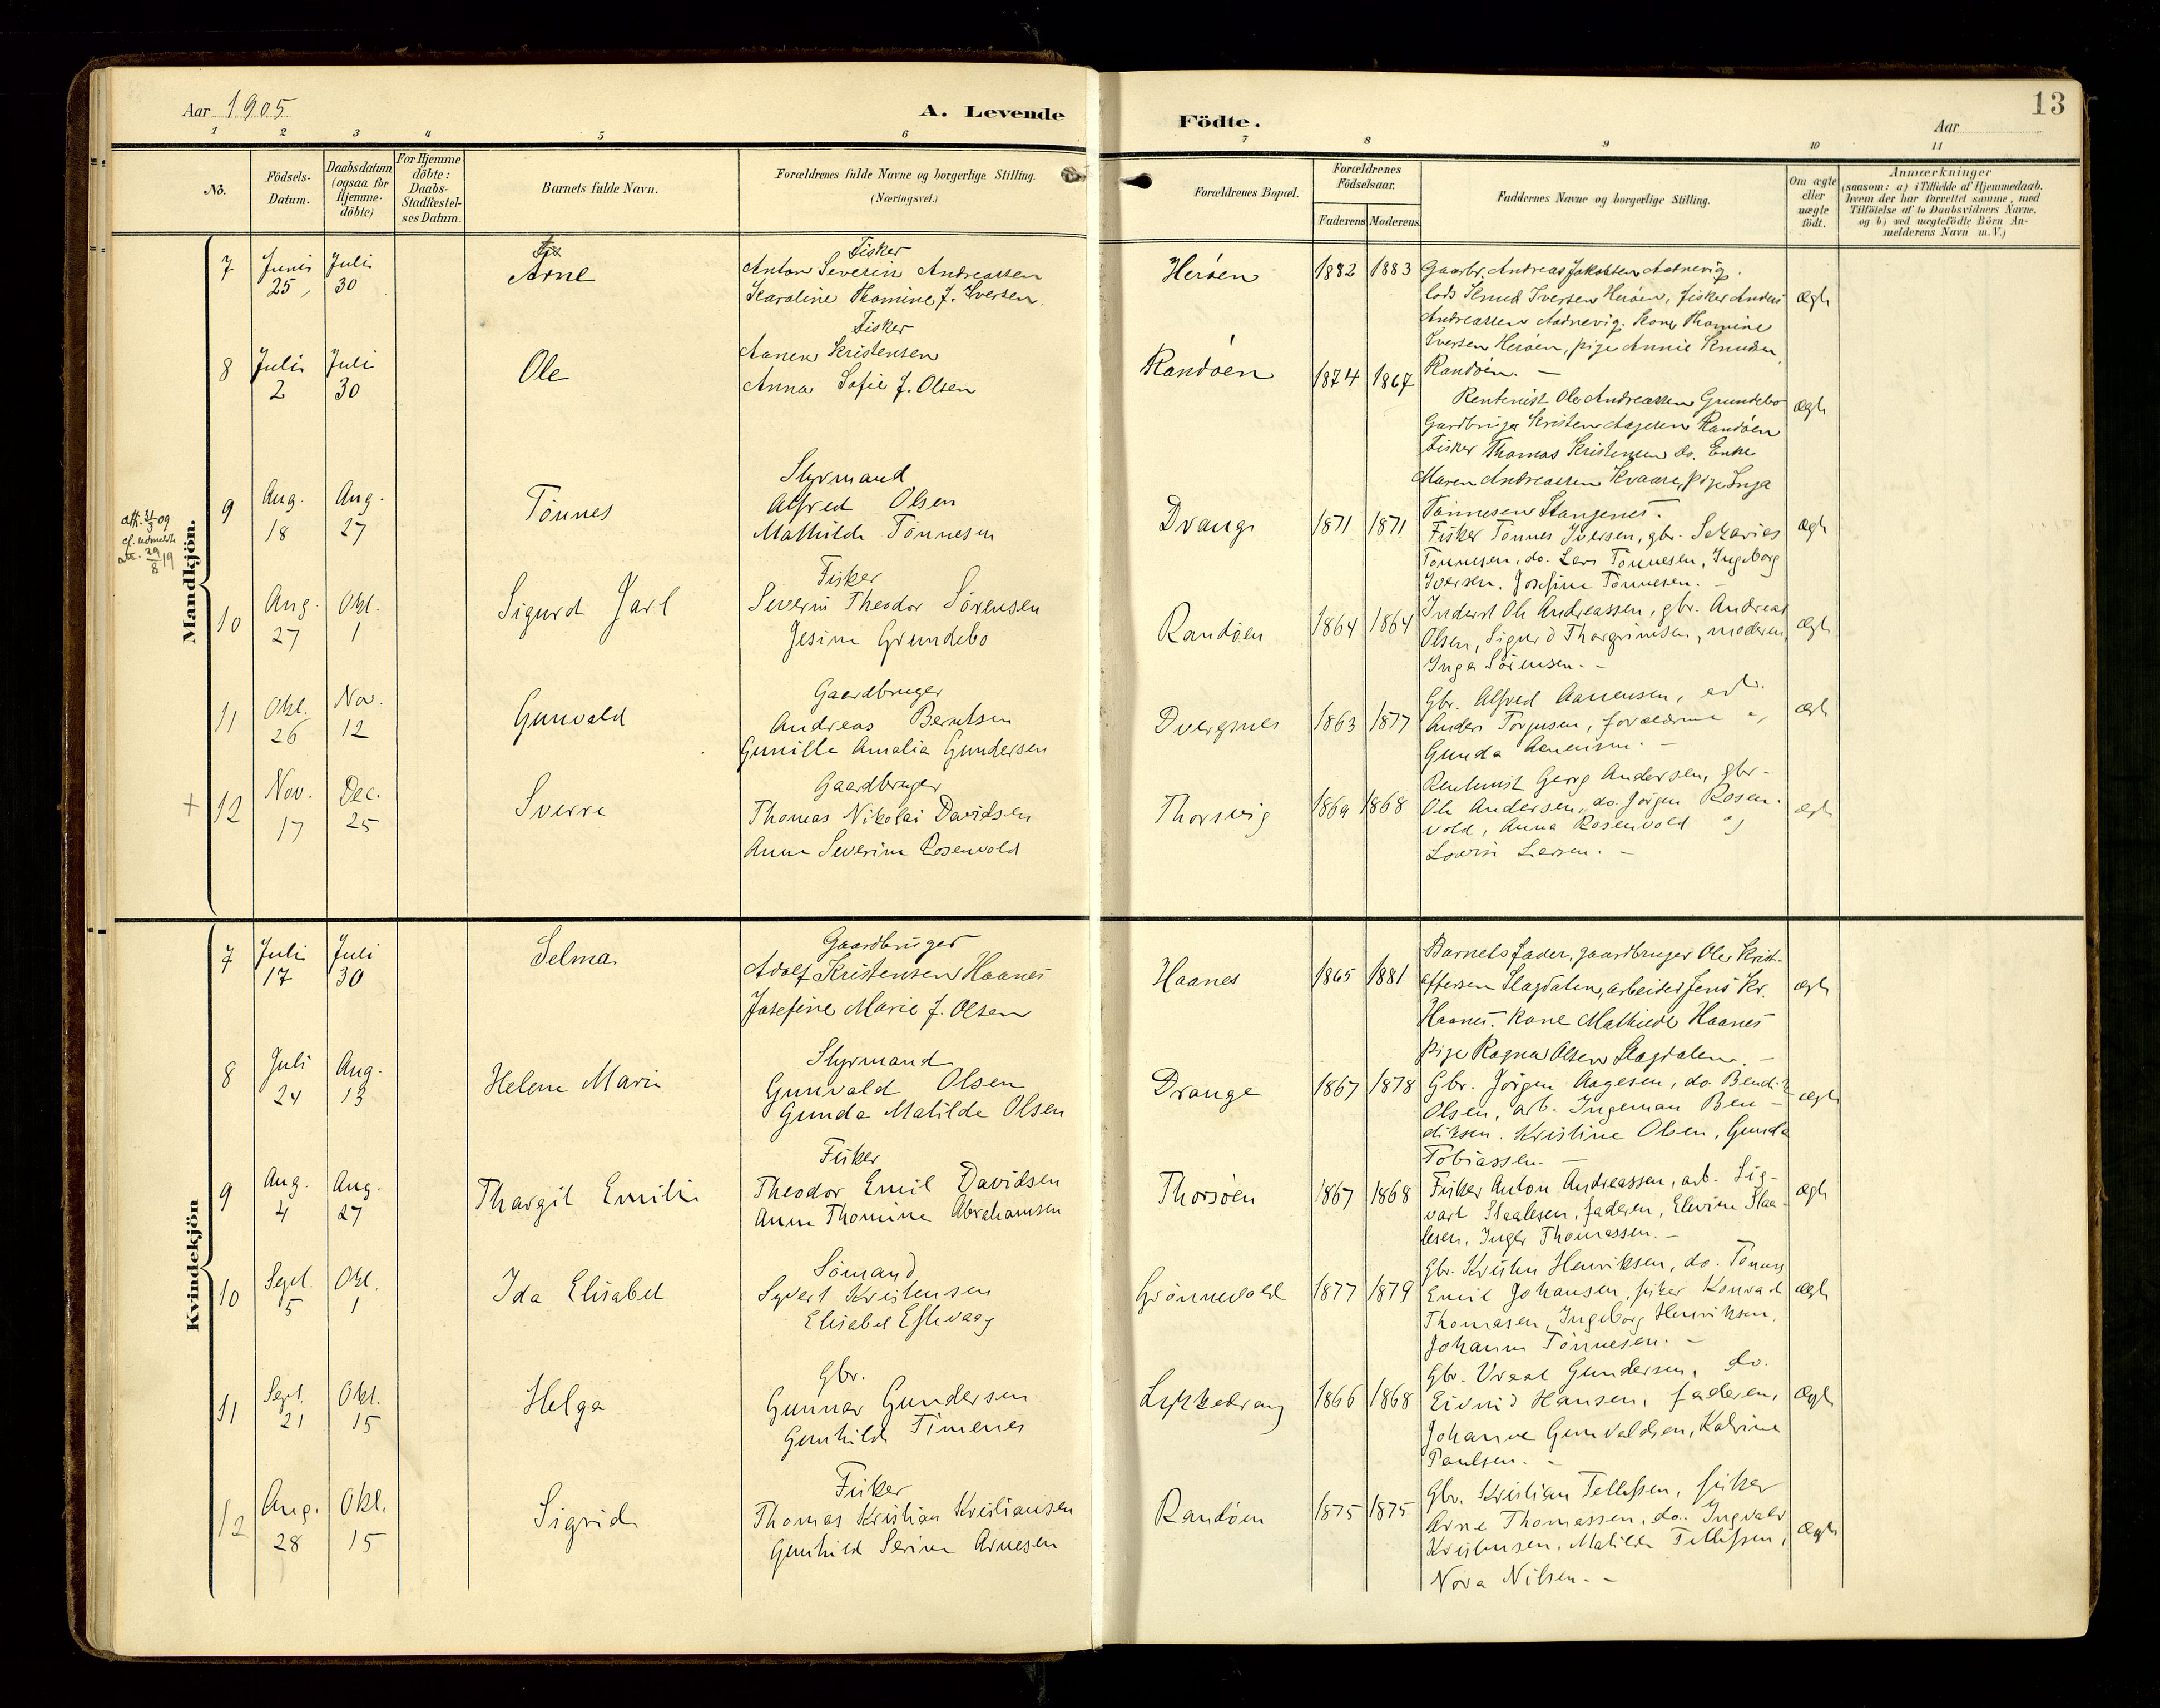 Aar 1905
A. Levende
Födte.
Aar
13
1 2 3 4 5 6 7 8 9 10 11
Nö.
Födsels-
Datum.
Daabsdatum
(ogsaa for
Hjemme-
döbte)
For Hjemme
döbte:
Daabs-
Stadfæstel-
ses Datum.
Barnets fulde Navn.
Forældrenes fulde Navne og borgerlige Stilling.
(Næringsvei.)
Forældrenes Bopæl.
Forældrenes
Födselsaar.
Faderens Moderens
Faddernes Navne og borgerlige Stilling.
Om ægte
eller
uægte
födt.
Anmærkninger
(saasom: a) i Tilfælde af Hjemmedaab,
hvem der har forrettet samme, med
Tilföielse af to Daabsvidners Navne.
og b) ved uægtefödte Börn An-
melderens Navn m.V.)
Mandkjön.
7
Juni
25
Juli
30
Arne
Fisker
Anton Severin Andreassen
Karoline Thomine f. Iversen
Heröen
1882 1883
Gaarbr. Andreas Jakobsen Aadnevig.
lods Knud Iversen Heröen, fisker Anders
Andreassen Aadnevig. Kone Thomine
Iversen Heröen, pige Annie Knudsen,
Randöen. –
ægte
8
Juli
2
Juli
30
Ole
Fisker
Aanen Kristensen
Anna Sofie f. Olsen
Randöen
1874 1867
Rentenist Ole Andreassen Grundebo
Gardbruger Kristen Aagesen Randöen
Fisker Thomas Kristensen do. Enke
Maren Andreassen Kvaase, pige Inga
Tönnesen Stangenes.
ægte
9
Aug.
18
Aug.
27
Tönnes
Styrmand
Alfred Olsen
Mathilde Tönnesen
Drange
1871 1871
Fisker Tönnes Iversen, gbr. Sakarias
Tönnesen, do. Lars Tönnesen, Ingeborg
Iversen. Josefine Tönnesen. –
ægte
10
Aug.
27
Okt.
1
Sigurd Jarl
Fisker
Severin Theodor Sörensen
Jesine Grundebo
Randöen
1864 1864
Inderst Ole Andreassen, gbr. Andreas
Olsen, Sigurd Thorgrimsen, moderen,
Inga Sörensen. –
ægte
11
Okt.
26
Nov.
12
Gunvald
Gaardbruger
Andreas Berntsen
Gunille Amalia Gundersen
Dvergsnes
1863 1877
Gbr. Alfred Aanensen,
Anders Torjusen, forældrene og
Gunda Aanensen. –
ægte
+ 12
Nov.
17
Dec.
25
Sverre
Gaardbruger
Thomas Nikolai Davidsen
Anne Severine Rosenvold
Thorsvig
1869 1868
Rentenist Georg Andersen, gbr.
Ole Andersen, do. Jörgen Rosen-
vold, Anna Rosenvold og
Lovise Larsen. –
ægte
Kvindekjön
7
Juli
17
Juli
30
Selma
Gaardbruger
Adolf Kristensen Haanes
Josefine Marie f. Olsen
Haanes
1865 1881
Barnets fader, gaardbruger Ole Krist-
offersen Slagdalen, arbeider Jens Kr.
Haanes. Kone Mathilde Haanes
pige Ragna Olsen Slagdalen. –
ægte
8
Juli
24
Aug.
13
Helene Marie
Styrmand
Gunvald Olsen
Gunda Matilde Olsen
Drange
1867 1878
Gbr. Jörgen Aagesen, do. Bendik
Olsen, arb. Ingeman Ben-
diksen. Kristine Olsen, Gunda
Tobiassen. –
ægte
9
Aug.
4
Aug.
27
Thargil Emilie
Fisker
Theodor Emil Davidsen
Anne Thomine Abrahamsen
Thorsöen
1867 1868
Fisker Anton Andreassen, arb. Sig-
vart Staalesen, faderen, Elevine Staa-
lesen, Inger Thomassen. –
ægte
10
Sept.
5
Okt.
1
Ida Elisabet
Sömand
Syvert Kristensen
Elisabet Eftevaag
Grönnevold
1877 1879
Gbr. Kristen Henriksen, do. Tönnes
Emil Johansen, fisker Konrad
Thomasen, Ingeborg Henriksen,
Johanne Tönnesen. –
ægte
11
Sept.
21
Okt.
15
Helga
Gbr.
Gunnar Gundersen
Gunhilde Timenes
Lykkedrang
1866 1868
Gbr. Vraal Gundersen, do.
Eivind Hansen, faderen,
Johanne Gunvaldsen, Katrine
Paulsen. –
ægte
12
Aug.
28
Okt.
15
Sigrid
Fisker
Thomas Kristian Kristiansen
Gunhild Serine Arnesen
Randöen
1875 1875
Gbr. Kristian Tellefsen, fisker
Arne Thomassen, do. Ingvald
Kristensen, Matilde Tellefsen,
Nora Nilsen. –
ægte